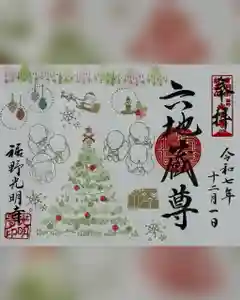 奉拝
六地蔵尊
令和七年
十二月一日
裾野光明寺